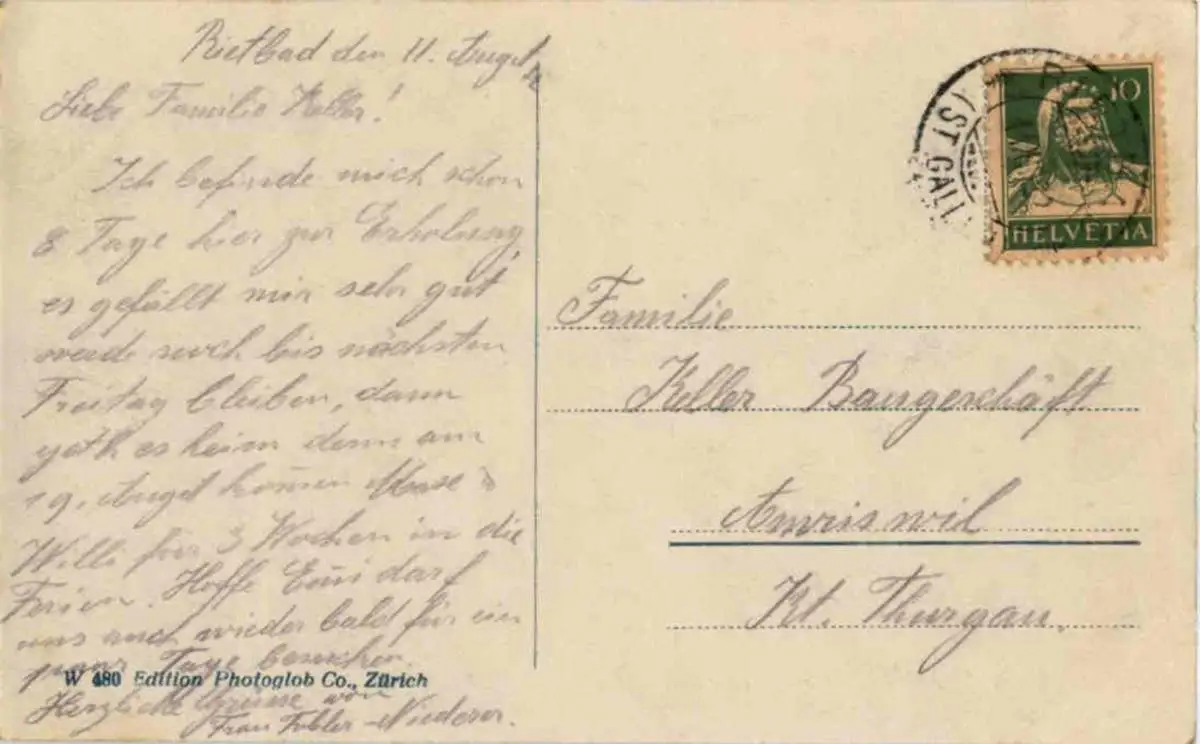 Rietbad den 11. Augst
Liebe Familie Keller!
Ich befinde mich schon
8 Tage hier zur Erholung,
es gefällt mir sehr gut
werde noch bis nächsten
Freitag bleiben, dann
geth es heim denn am
19. Augst kommen
Willi für 3 Wochen in die
Ferien. Hoffe Eusi darf
uns auch wieder bald für ein
paar Tage besuchen.
W 480 Edition Photoglob Co., Zürich
Herzliche Grüsse von
Frau Niederer.
10
HELVETIA
(ST GALL
Familie
Keller Baugeschäft
Amriswil
Kt. Thurgau.